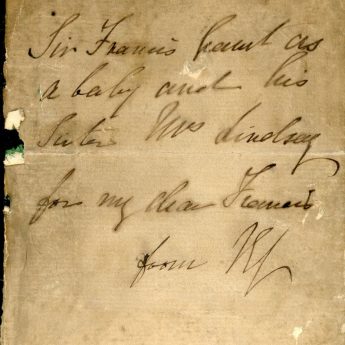 Sir Francis Grant as
a baby and his
Sister Mrs Lindsay
for my dear Francis
from